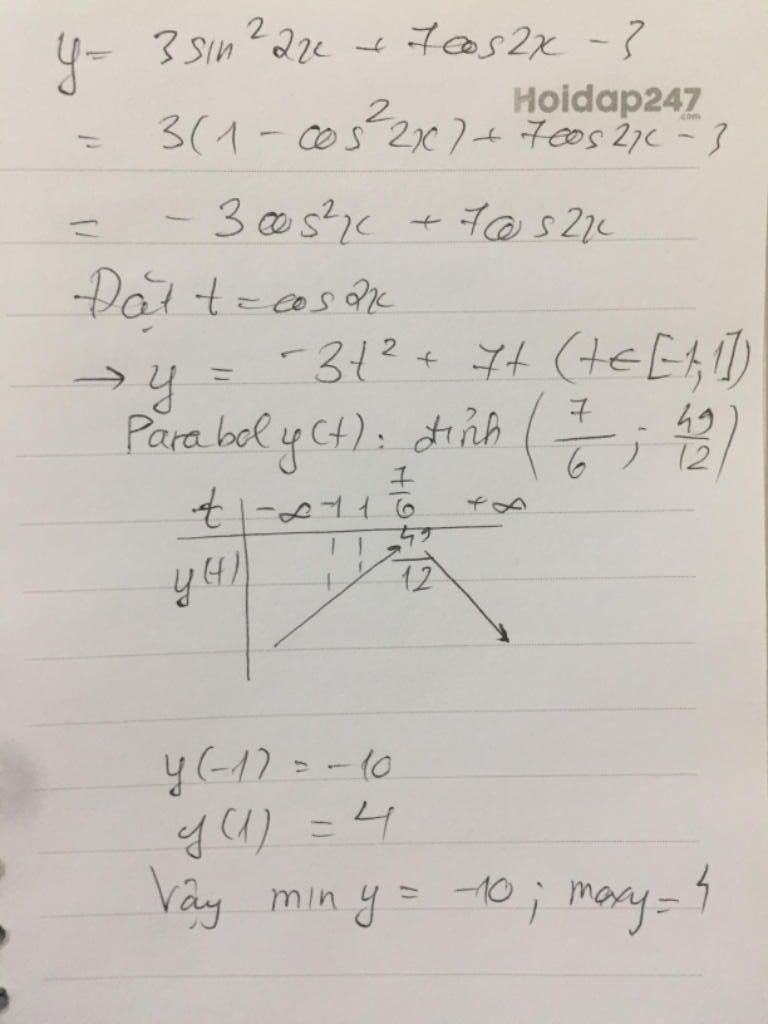 y = 3sin²2x + 7cos2x - 3
Hoidap247
.com
= 3(1 - cos²2x) + 7cos2x - 3
= -3cos²x + 7cos2x
Đặt t = cos2x
→ y = -3t² + 7t (t ∈ [-1,1])
Parabol y(t): đỉnh (7/6 ; 49/12)
t | -∞ -1 1 7/6 +∞
y(t) | 49/12
y(-1) = -10
y(1) = 4
Vậy min y = -10 ; maxy = 4